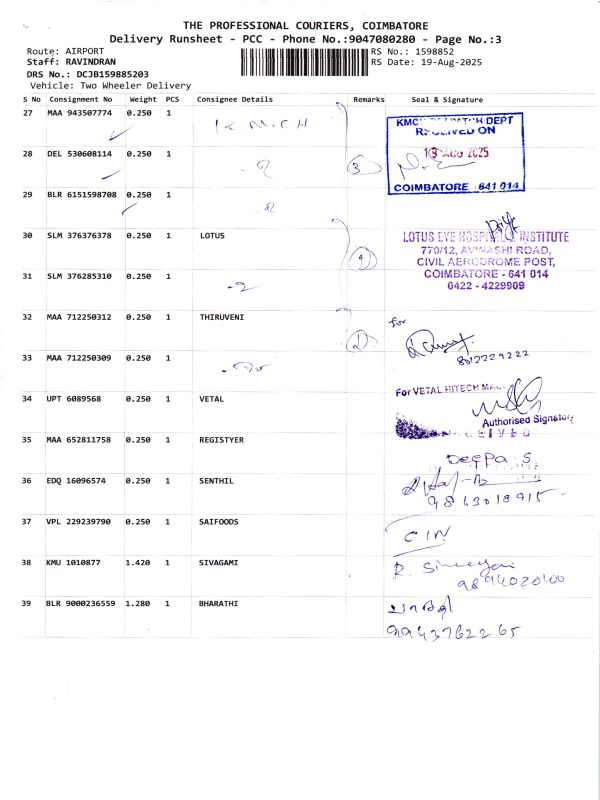 THE PROFESSIONAL COURIERS, COIMBATORE
Delivery Runsheet - PCC - Phone No.:9047080280 - Page No.:3
Route: AIRPORT RS No.: 1598852
Staff: RAVINDRAN RS Date: 19-Aug-2025
DRS No.: DCJB159885203
Vehicle: Two Wheeler Delivery
S No Consignment No Weight PCS Consignee Details Remarks Seal & Signature
27 MAA 943507774 0.250 1 K M C H
KMCH DEPT
RECEIVED ON
28 DEL 530608114 0.250 1 3 19 AUG 2025
COIMBATORE - 641 014
29 BLR 6151598708 0.250 1
30 SLM 376376378 0.250 1 LOTUS
LOTUS EYE HOSPITAL & INSTITUTE
770/12, AVINASHI ROAD,
CIVIL AERODROME POST,
COIMBATORE - 641 014
0422 - 4229909
31 SLM 376285310 0.250 1
32 MAA 712250312 0.250 1 THIRUVENI for
33 MAA 712250309 0.250 1
34 UPT 6089568 0.250 1 VETAL
For VETAL HITECH
Authorised Signatory
35 MAA 652811758 0.250 1 REGISTYER
Deepa S
36 EDQ 16096574 0.250 1 SENTHIL
9843018915
37 VPL 229239790 0.250 1 SAIFOODS
38 KMU 1010877 1.420 1 SIVAGAMI
9894020400
39 BLR 9000236559 1.280 1 BHARATHI
பாரதி
9943762265